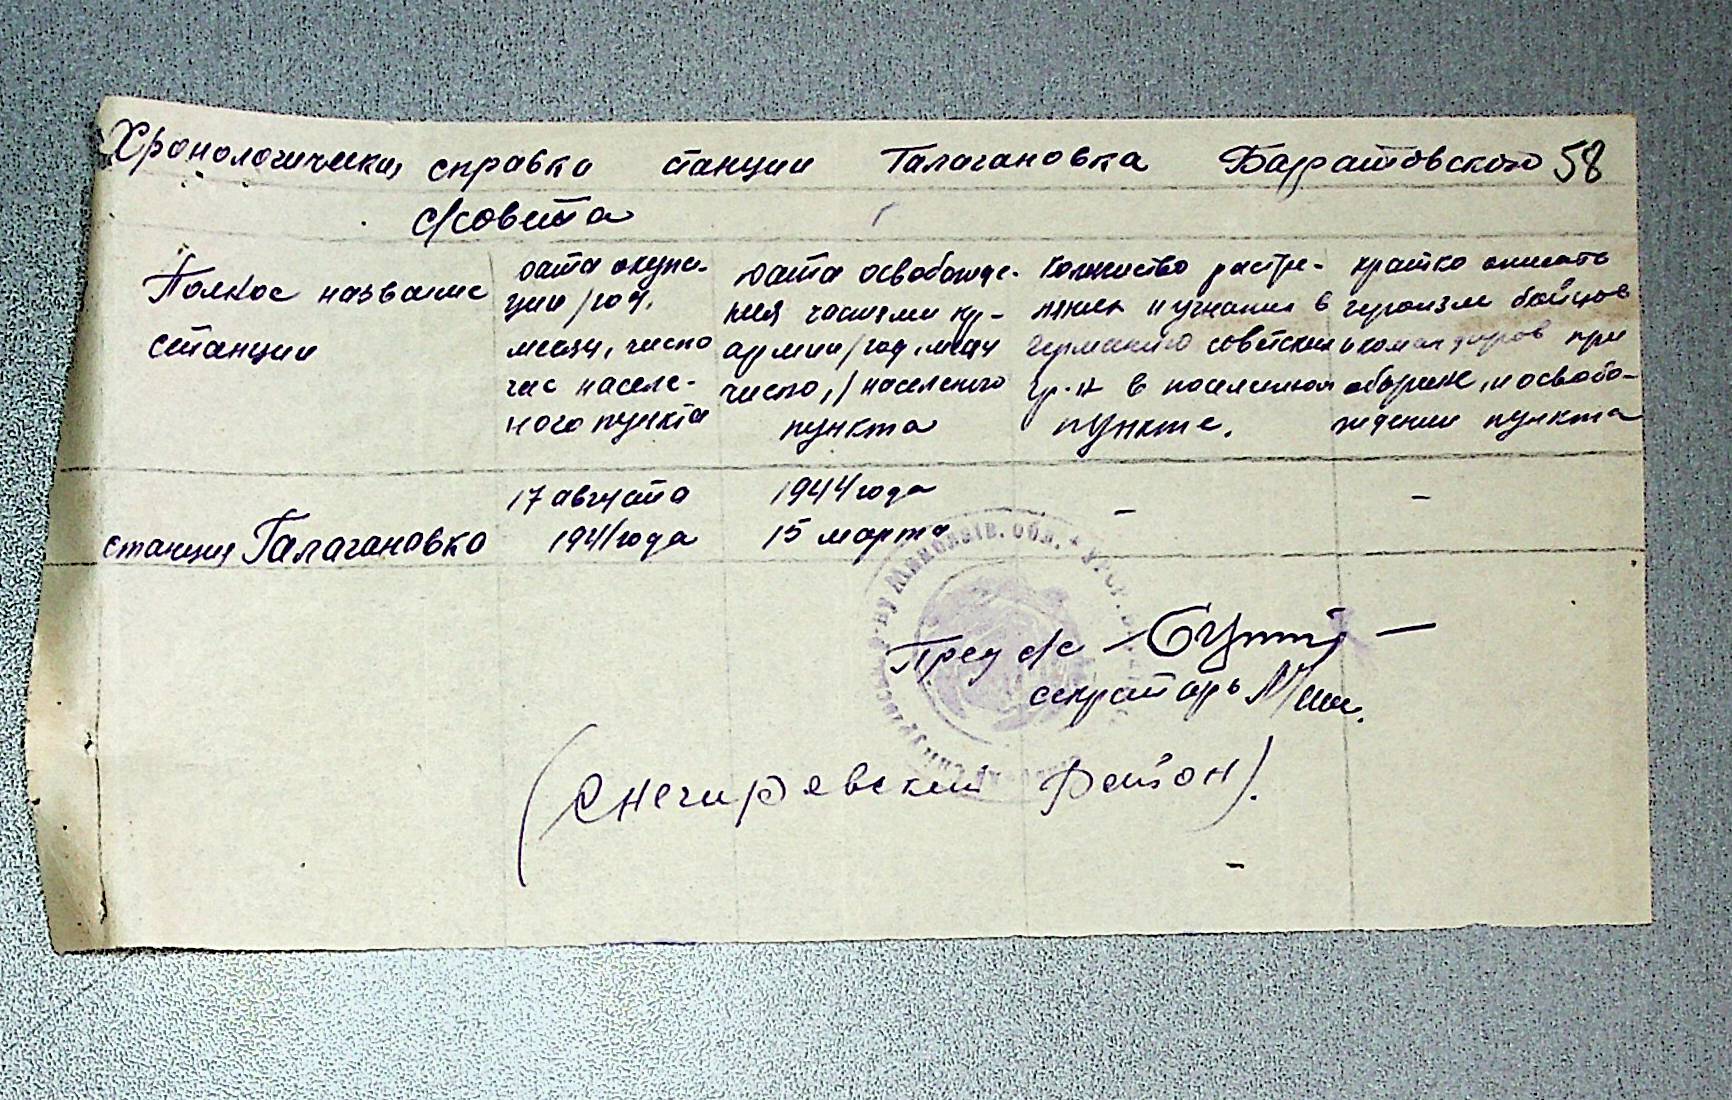 Хронологическая справка станции Галагановка Баратовского 58
с/совета
Полное название
станции
Дата оккупа-
ции /год,
месяц, число
час населе-
ного пункта
Дата освобожде-
ния частями кр-
армии /год, месяц
число,/ населеного
пункта
Количество растре-
ляных и угнаных в
германию советских
гр-н в населеном
пункте.
кратко описать
героизм бойцов
и командиров при
обороне, и освобо-
ждении пункта
станция Галагановка
17 августа
1941 года
1944 года
15 марта
-
-
Пред с/с
секратарь
(Снегиревский район).